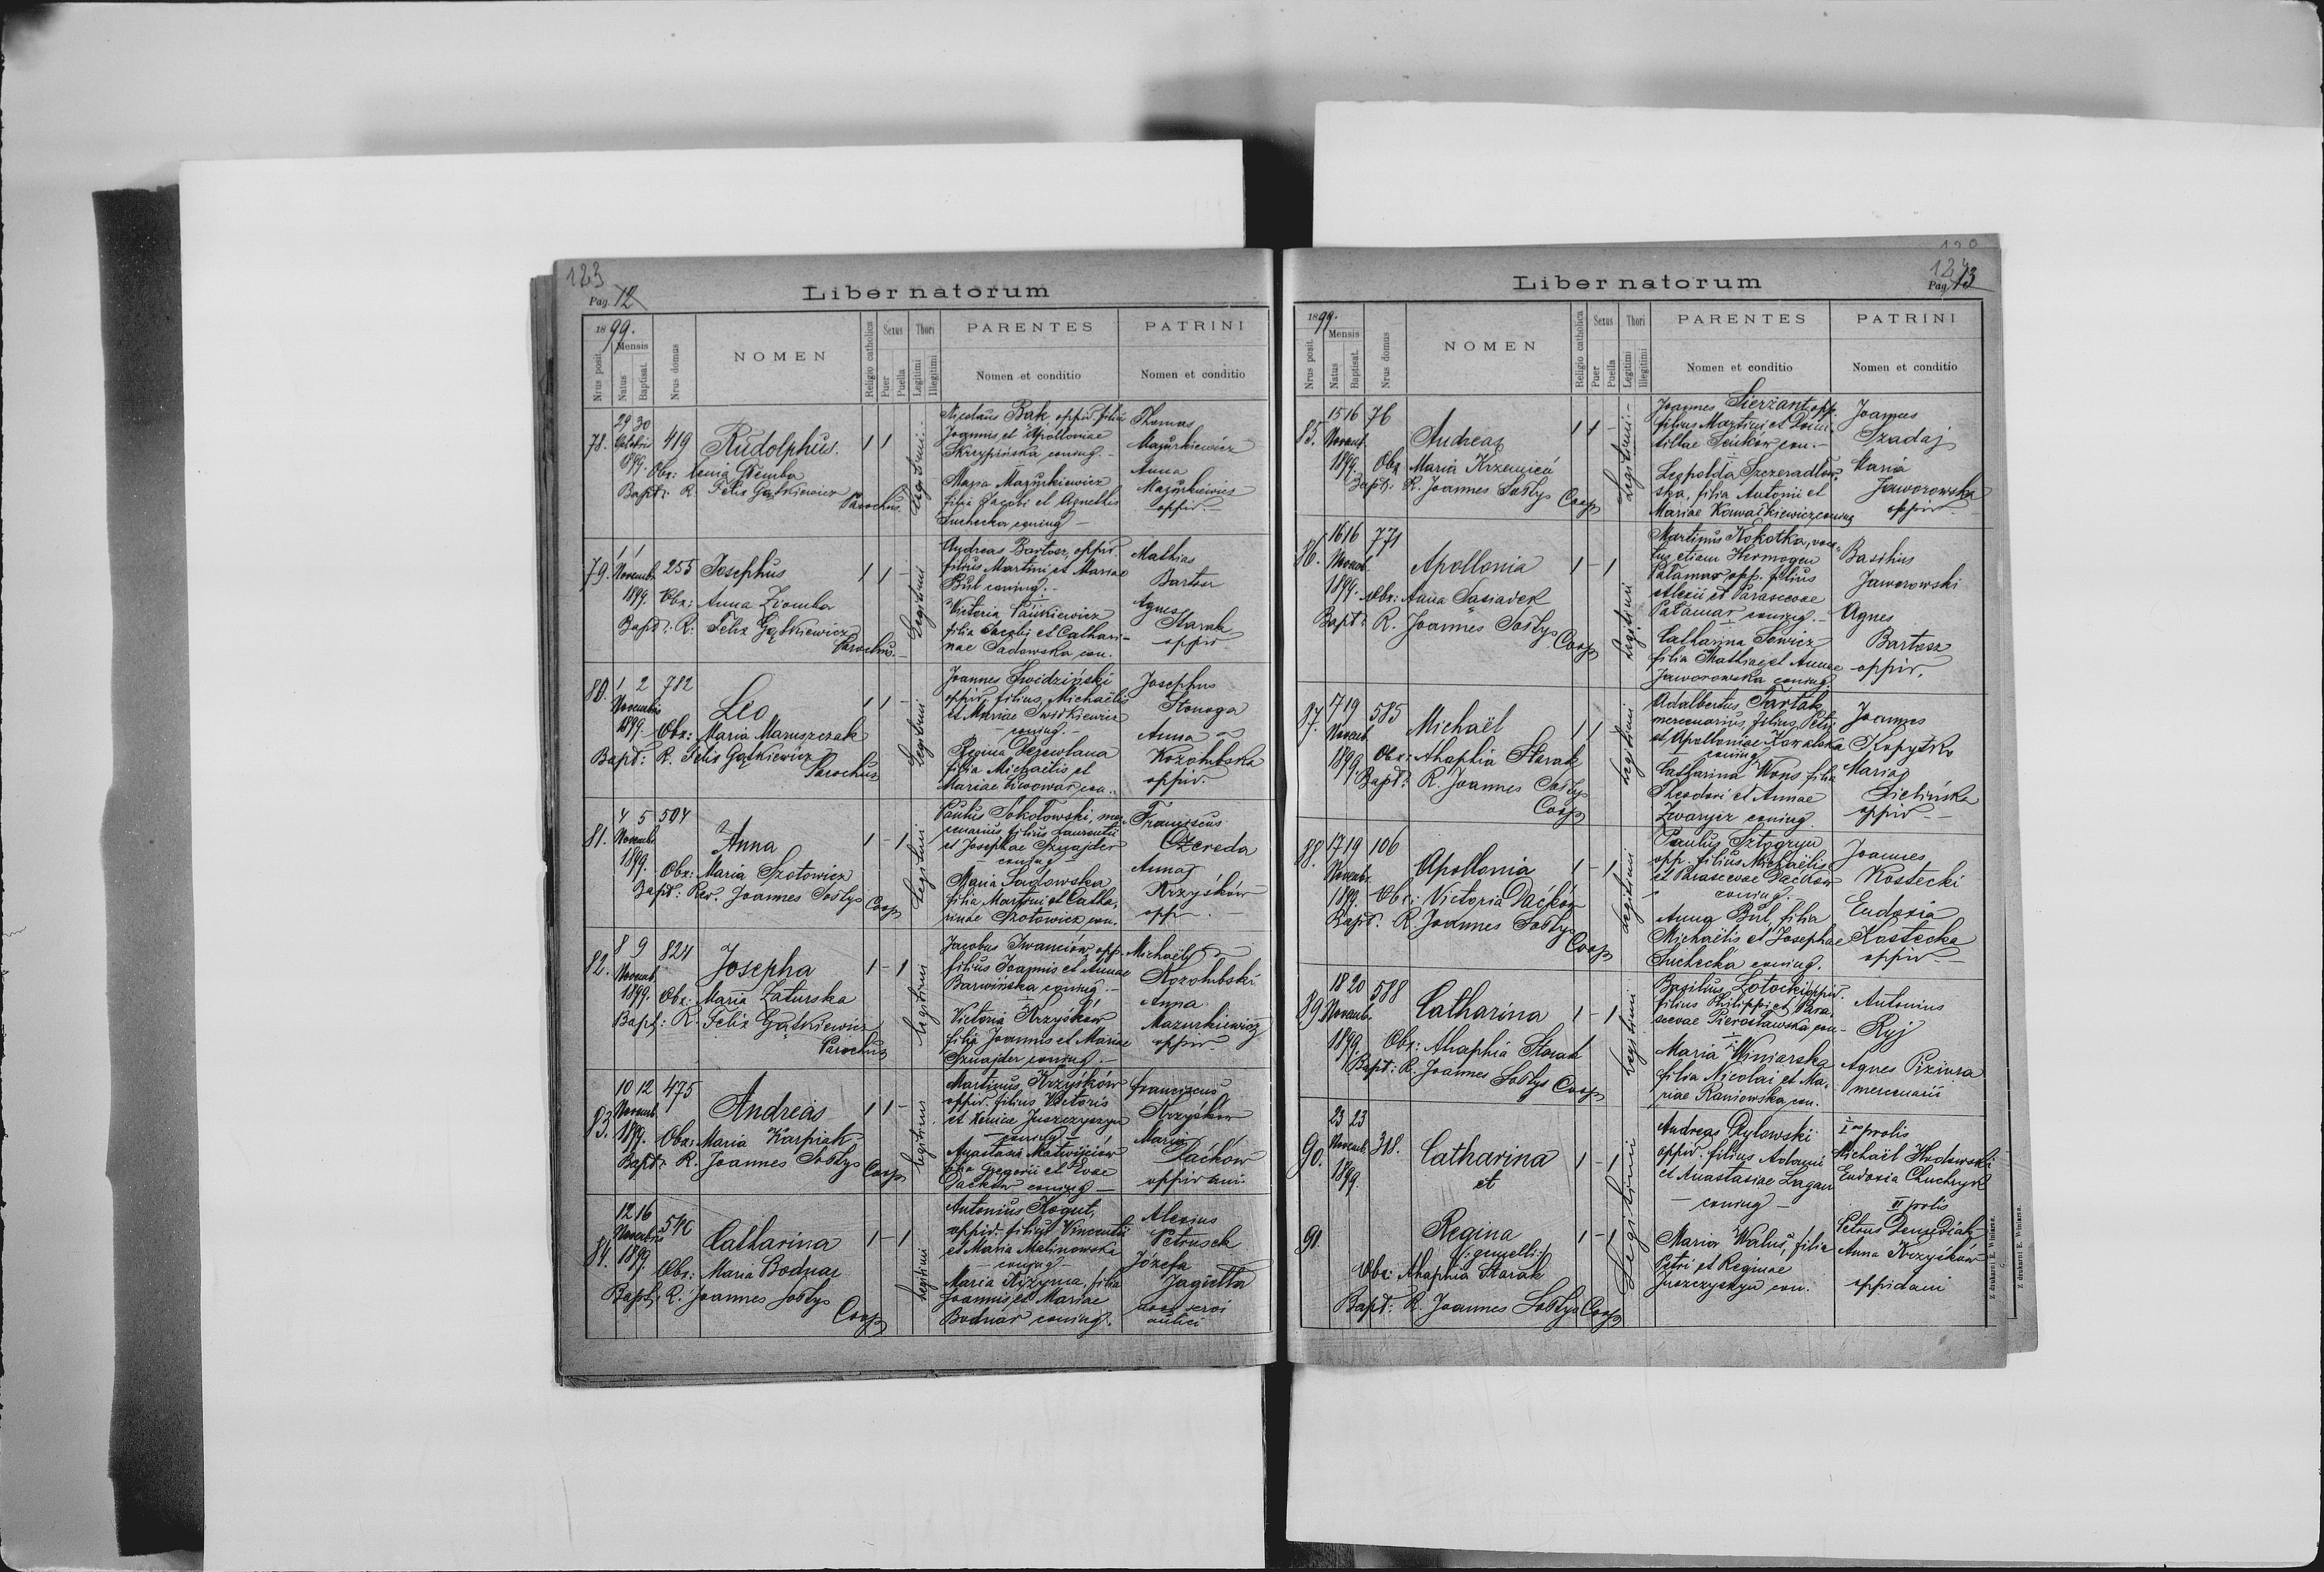 123
Pag. 12
Liber natorum
1899.
Nrus posit.
Mensis
Natus
Baptisat.
Nrus domus
NOMEN
Religio catholica
Sexus
Puer
Puella
Thori
Legitimi
Illegitimi
PARENTES
Nomen et conditio
PATRINI
Nomen et conditio
78.
29 30
Octobris
1899.
419
Rudolphus.
1 1 -
Legitimi
Obx: Xenia Dremba
Bapt: R. Felix Gątkiewicz
Parochus.
Nicolaus Bak, oppid. filius
Joannis et Apolloniae
Skrzypińska coniug. -
Maria Mazurkiewicz
filia Jacobi et Agnethis
Suchecka coniug -
Thomas
Mazurkiewicz
Anna
Mazurkiewicz
oppid -
79.
1 1
Novemb.
1899.
255
Josephus
1 1 -
Legitimi
Obx: Anna Ziomba
Bapt: R. Felix Gątkiewicz
Parochus. -
Andreas Bartosz, oppid.
filius Martini et Mariae
Bul coniug. -
Victoria Pańkiewicz
filia Jacobi et Cathari-
nae Sadowska con.
Mathias
Bartosz
Agnes
Starak
oppid
80.
1 2
Novembris
1899.
782
Leo
1 1 -
Legitimi
Obx: Maria Maruszczak
Bapt: R. Felix Gątkiewicz
Parochus
Joannes Swidziński
oppid, filius Michaëlis
et Mariae Swidkiewicz
- coniug. -
Regina Derewlana
filia Michaëlis et
Mariae con.
Josephus
Stonoga
Anna
Kozołubska
oppid.
81.
4 5
Novemb.
1899.
504
Anna
1 - 1
Legitimi
Obx: Maria Szotowicz
Bapt: Rev. Joannes Sołtys Coop
Paulus Sokołowski, mer-
cenarius, filius Laurentii
et Josephae Sznajder
- coniug
Maria Sadowska
filia Martini et Catha-
rinae Szotowicz con.
Franciscus
Czereda
Anna
Krzyśków
opp. -
82.
8 9
Novemb.
1899.
824
Josepha
1 - 1
Legitimi
Obx: Maria Zaturska
Bapt: R. Felix Gątkiewicz
Parochus
Jacobus Iwanciów, opp.
filius Joannis et Annae
Barwińska coniug. -
Victoria Krzyśków
filia Joannis et Mariae
Sznajder coniug. -
Michaël
Kozołubski
Anna
Mazurkiewicz
oppid.
83.
10 12
Novemb.
1899.
475
Andreas
1 1 -
Legitimus
Obx: Maria Karpiak
Bapt: R. Joannes Sołtys Coop
Martinus Krzyśków
oppid. filius Victoris
et Xeniae Juszczyszyn
- coniug -
Anastasia Matwijciów
filia Gregorii et Evae
Daćków coniug -
Franciscus
Krzyśków
Maria
Daćków
oppidani
84.
12 16
Novembris
1899.
540
Catharina
1 - 1
Legitimi
Obx: Maria Bodnar
Bapt: R. Joannes Sołtys
Coop
Antonius Kogut,
oppid. filius Vincentii
et Maria Malinowska
- coniug -
Maria Krzyma, filia
Joannis et Mariae
Bodnar coniug.
Alexius
Petruseh
Józefa
Jagiełła
servi
aulici
Liber natorum
Pag. 13
1899.
Nrus posit.
Mensis
Natus
Baptisat.
Nrus domus
NOMEN
Religio catholica
Sexus
Puer
Puella
Thori
Legitimi
Illegitimi
PARENTES
Nomen et conditio
PATRINI
Nomen et conditio
85.
15 16
Novemb.
1899.
76
Andreas
1 1 -
Legitimi -
Obx Maria Krzemień
Bapt: R. Joannes Sołtys Coop
Joannes Sierżant, opp.
filius Martini et Domi-
tillae Seńków con. -
Leopolda Szczeradłow-
ska, filia Antonii et
Mariae Kowaśkiewicz coniug
Joannes
Szadaj
Maria
Jaworowska
oppid
86.
16 16
Novemb.
1899.
771
Apollonia
1 - 1
Legitimi
Obx: Anna Sasiadek
Bapt: R. Joannes Sołtys Coop
Martinus Kokotka, voca-
tus etiam Hermogen
Pałamar, opp. filius
Alexii et Parascevae
Pałamar coniug. -
Catharina Sowicz
filia Mathiae et Annae
Jaworowska coniug
Basilius
Jaworowski
Agnes
Bartosz
oppid.
87.
17 19
Novemb.
1899.
585
Michaël
1 1
Legitimi
Obx: Ahaphia Starak
Bapt: R. Joannes Sołtys
Coop
Adalbertus Tartak,
mercenarius, filius Petri
et Apolloniae Kowalska
coniug
Catharina Wons filia
Theodori et Annae
Zwaryez coniug
Joannes
Kopytko
Maria
Zielińska
oppid -
88.
17 19
Novemb.
1899.
106
Apollonia
1 - 1
Legitimi
Obx: Victoria Daćków
Bapt: R. Joannes Sołtys
Coop
Paulus Sztogryn
opp. filius Michaëlis
et Parascevae Daćków
- coniug. -
Anna Bul, filia
Michaëlis et Josephae
Suchecka coniug.
Joannes
Kostecki
Eudoxia
Kostecka
oppid -
89.
18 20
Novemb.
1899.
588
Catharina
1 - 1
Legitimi
Obx: Ahaphia Starak
Bapt: R. Joannes Sołtys Coop
Basilius Zotocki, oppid.
filius Philippi et Para-
scevae Pierosławska con-
Maria Winiarska
filia Nicolai et Ma-
riae Raniowska con.
Antonius
Ryj
Agnes Piziura
mercenarii
90.
23 23
Novemb.
1899.
318.
Catharina
et
1 - 1
91
Regina
/: gemelli :/
1 - 1
Legitimi
Obx: Ahaphia Starak
Bapt: R. Joannes Sołtys Coop
Andreas Dylowski
oppid. filius Adami
et Anastasiae Lagan
- coniug -
Maria Waluś, filia
Petri et Reginae
Juszczyszyn con.
I prolis
Michaël Hodowski
Eudoxia Chuchryk
II prolis
Petrus Demediuk
Anna Krzyśków
oppidani
Z drukarni E. Winiarza.
Z drukarni E. Winiarza.